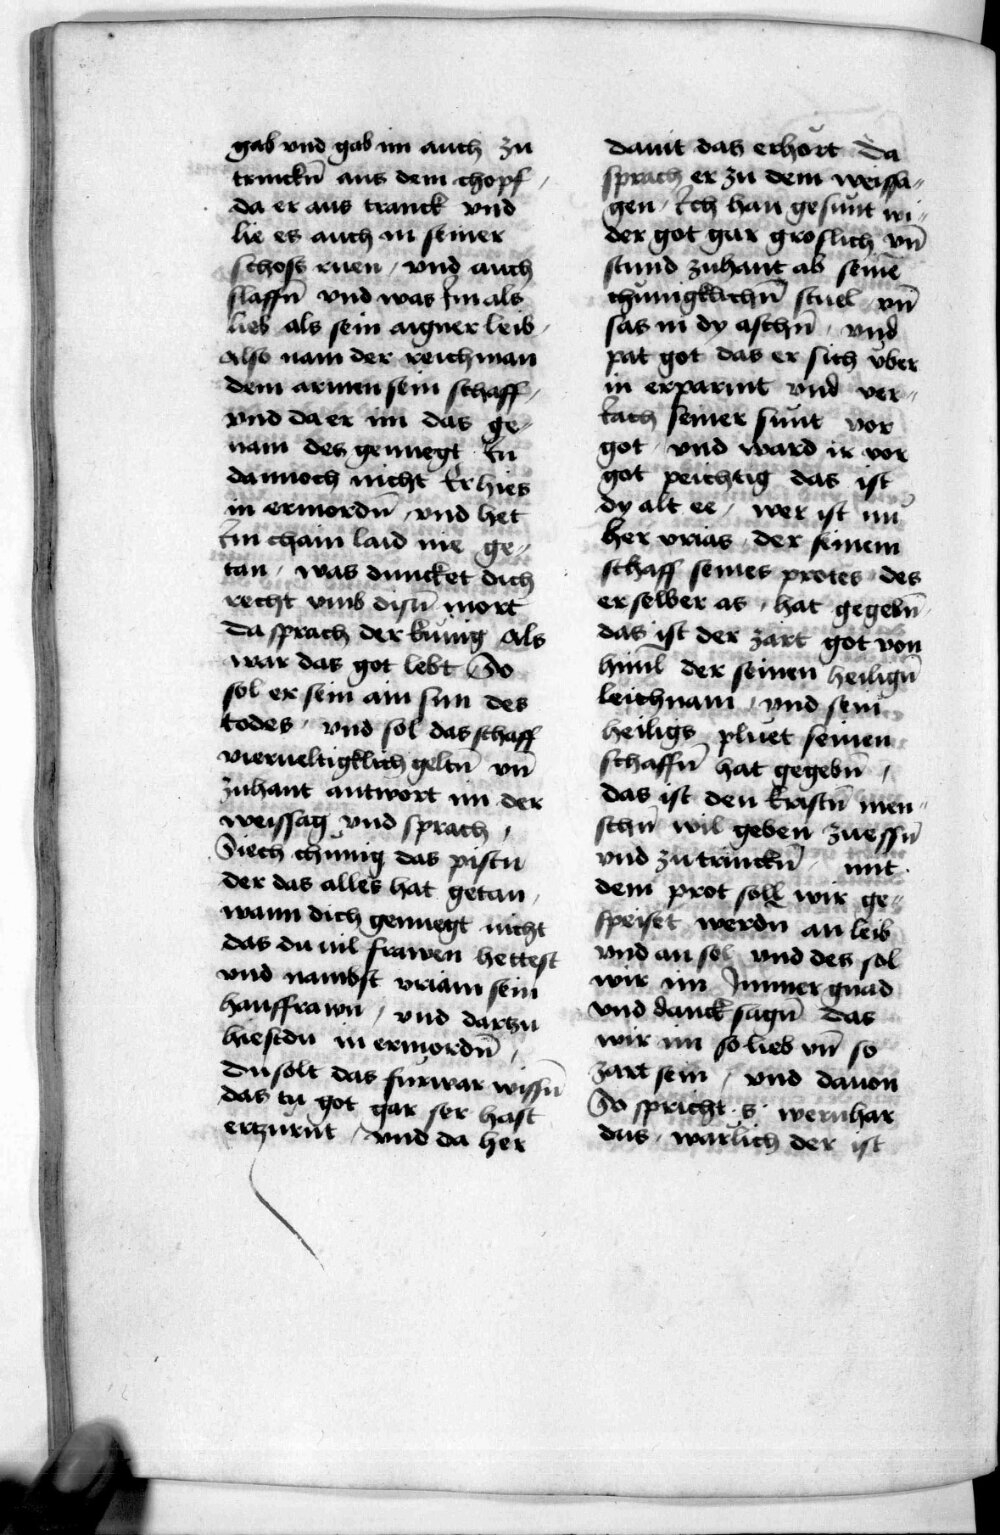 gab vnd gab im auch zu
trinckn̄ aus dem chopf /
da er aus tranck vnd
lie es auch in seiner
schoss ruen / vnd auch
slaffn̄ vnd was Im als
lieb als sein aigner leib /
Also nam der reich man
dem armen sein schaff /
vnd da er im das ge⸗
nam des genuegt In
dannoch nicht Er hies
in ermordn̄ / vnd het
Im chain laid nie ge⸗
tan / was duncket dich
recht vmb disn̄ mort
Da sprach der kunig Als
war das got lebt So
sol er sein ain sun des
todes / vnd sol das schaff
vierueltigklich geltn̄ vn̄
zuhant antwort im der
weissag vnd sprach /
Siech chunig das pistu
der das alles hat getan /
wann dich genuegt nicht
das du vil frawen hettest
vnd nambst vriam sein
hauffrawn / vnd dartzu
hiestdu in ermordn̄ /
Du solt das furwar wissn̄
das tu got gar ser hast
ertzurnt / vnd da her
dauit das erhort Da
sprach er zu dem weissa⸗
gen / Ich han gesunt wi⸗
der got gar groslich vn̄
stund zuhant ab seinē
chunigklichn̄ stuel vn̄
sas in dy aschn̄ / vnd
pat got das er sich vber
in erparmt vnd ver⸗
iach seiner sunt vor
got / vnd ward ir vor
got peichtig das ist
dy alt ee / wer ist nu
her vrias / der seinem
schaff seines protes / des
er selber as / hat gegebn̄
das ist der zart got von
himl der seinen heilign̄
leichnam / vnd sein
heiligs pluet seinen
schaffn̄ hat gegebn̄ /
das ist den kristn̄ men⸗
schn̄ wil geben zu essn̄
vnd zu trinckn̄ / mit
dem prot soll wir ge⸗
speiset werdn an leib
vnd an sel vnd des sol
wir im Immer gnad
vnd danck sagn̄ Das
wir im so lieb vn̄ so
zart sein / vnd dauon
So spricht · s · wernhar
dus / warlich der ist